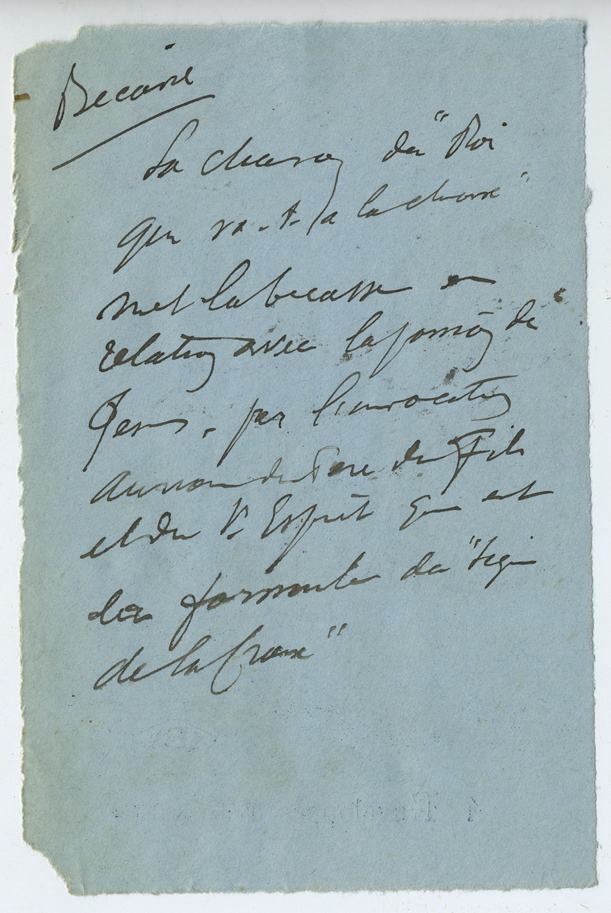 Becasse
La chanson du "Roi
qui va-t-à la chasse"
met la becasse en
relation avec la passion de
Jesus, par l'invocation
au nom du Pere du Fils
et du St Esprit qui est
la formule du "signe
de la Croix"